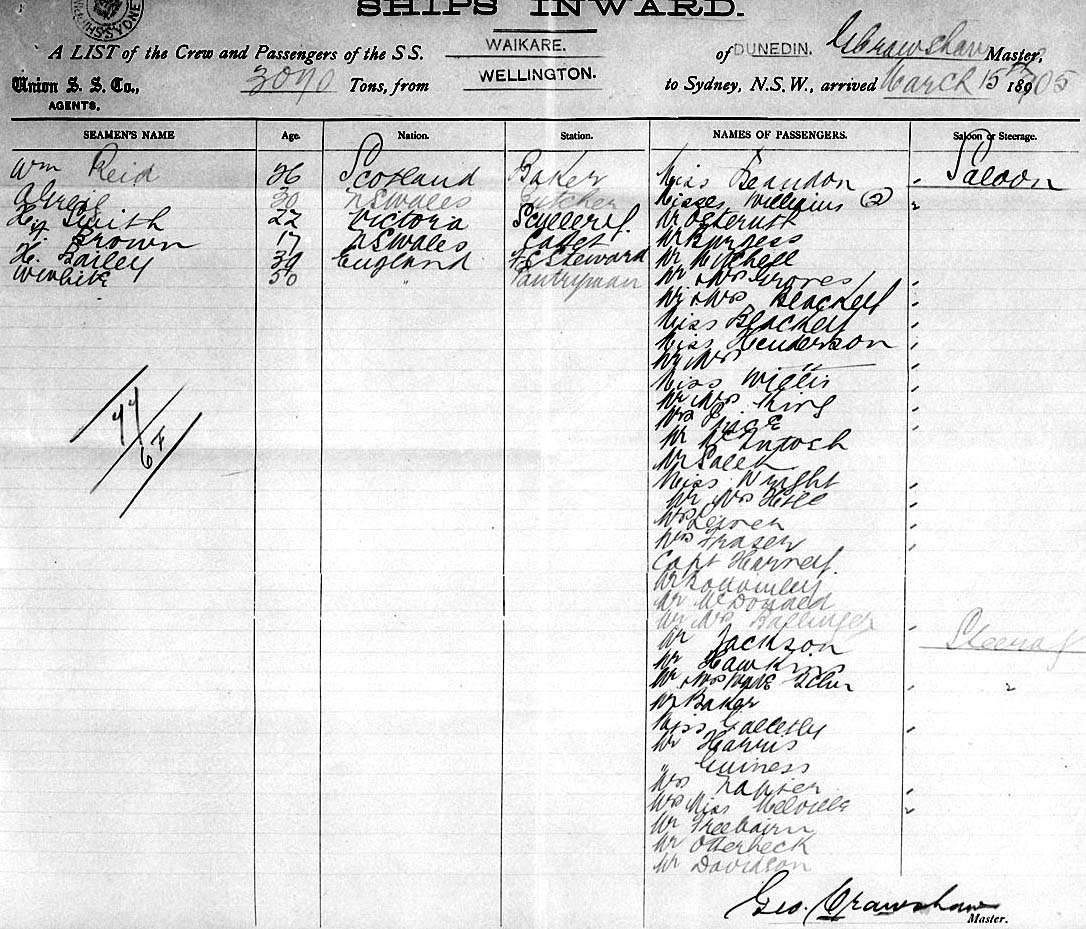 SHIPS INWARD.
A LIST of the Crew and Passengers of the S.S. WAIKARE. of DUNEDIN. G Crawshaw Master,
Union S. S. Co., 3070 Tons, from WELLINGTON. to Sydney, N.S.W., arrived March 15th 1905
AGENTS,
SEAMEN'S NAME Age. Nation. Station. NAMES OF PASSENGERS. Saloon or Steerage.
Wm Reid 26 Scotland Baker Miss Beaudon Saloon
30 NSWales Butcher Misses Williams (2)
Hy Smith 22 Victoria Scullery. Mr
Hy Brown 17 NSWales Cadet Mr Burgess
H. Bailey 39 England F.C. Steward Mr Mitchell
White 30 " Pantryman Mr & Mrs Groves
Mr & Mrs Blackett
Miss Blackett
Miss Henderson
Mr Mrs "
Miss Willis
Mr Mrs King
Mrs
Mr McIntosh
Mr Saleh
Miss Wright
Mr Mrs Hill
Mrs
Mrs Fraser
Capt
Mr Bottomley
Mr McDonald
Mr Mrs Ballinger
Mr Jackson Steerag
Mr Hawkins
Mr & Mrs
Mr Baker
Miss Galletly
Mr Harris
" Guiness
Mrs Napier
Mrs Miss Melville
Mr Freebairn
Mr Otterbeck
Mr Davidson
44
6 F
Geo. Crawshaw
Master.